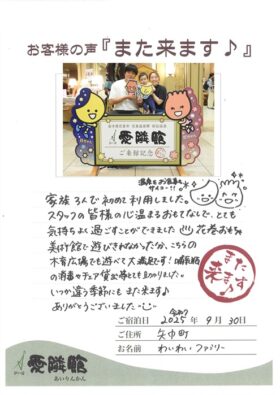 お客様の声『また来ます♪』
愛隣館
ご来館記念
温泉もお食事も
サイコー!!
家族3人で初めて利用しました。
スタッフの皆様の心温まるおもてなしで、とても
気持ちよく過ごすことができました 花巻おもちゃ
美術館で遊びきれなかった分、こちらの
木育広場でも遊べて大満足です!哺乳瓶
の消毒やチェア貸出等とても助かりました。
いつか違う季節にも また来ます♪
ありがとうございました
また来ます
令和7
ご宿泊日 2025年 9月 30日
ご住所 矢巾町
お名前 わいわいファミリー
愛隣館
あいりんかん